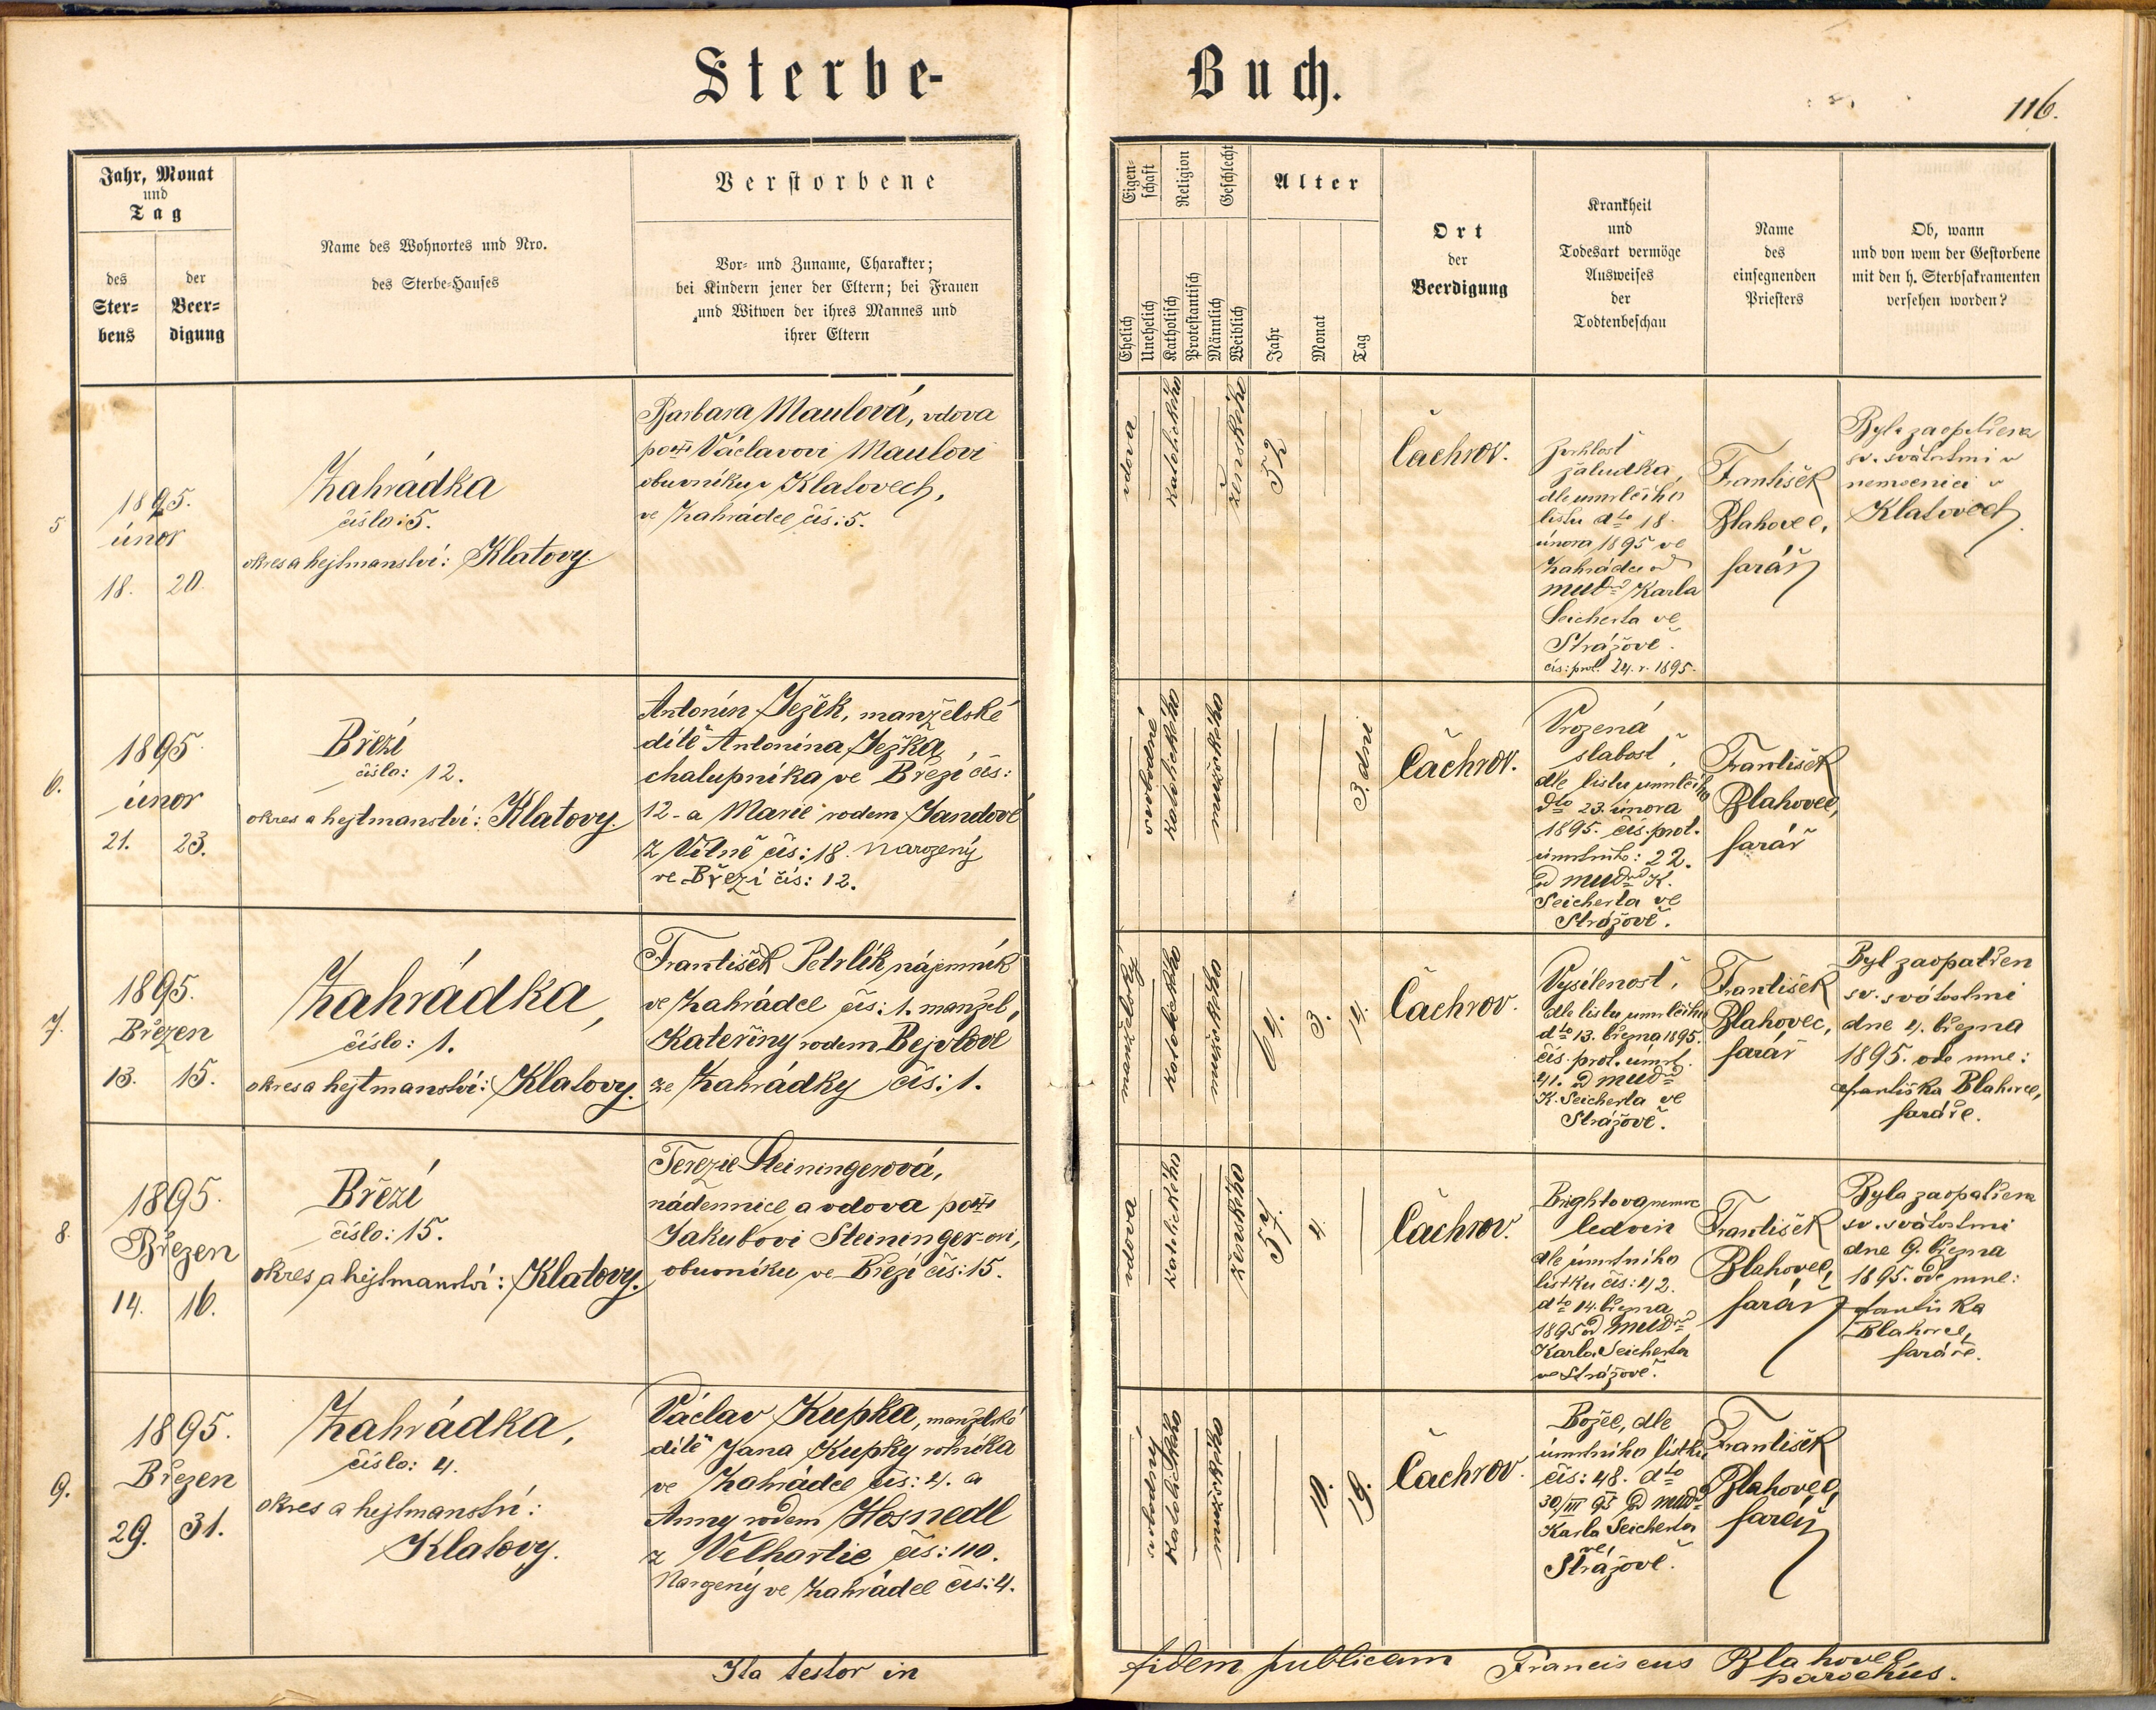 Sterbe-Buch.
116.
Jahr, Monat
und
Tag
des
Ster=
bens
der
Beer=
digung
Name des Wohnortes und Nro.
des Sterbe-Hauses
Verstorbene
Vor- und Zuname, Charakter;
bei Kindern jener der Eltern; bei Frauen
und Witwen der ihres Mannes und
ihrer Eltern
Eigen-
schaft
Religion
Geschlecht
Alter
Ehelich
Unehelich
Katholisch
Protestantisch
Männlich
Weiblich
Jahr
Monat
Tag
Ort
der
Beerdigung
Krankheit
und
Todesart vermöge
Ausweises
der
Todtenbeschau
Name
des
einsegnenden
Priesters
Ob, wann
und von wem der Gestorbene
mit den h. Sterbsakramenten
versehen worden?
5
1895.
únor
18. 20.
Zahrádka
číslo: 5.
okres a hejtmanství: Klatovy.
Barbara Maulová, vdova
po Václavovi Maulovi
obuvníku v Klatovech,
ve Zahrádce čís: 5.
vdova
katolického
ženského
52
Čachrov.
žaludka,
dle umrlčího
listu dto 18.
února 1895 ve
Zahrádce od
mudra Karla
Seicherta ve
Strážově.
čís: prot. 24. r. 1895.
František
Blahovec,
farář
Byla zaopatřena
sv. svátostmi v
nemocnici v
Klatovech.
6.
1895.
únor
21. 23.
Březí
číslo: 12.
okres a hejtmanství: Klatovy.
Antonín Ježek, manželské
dítě Antonína Ježka,
chalupníka ve Březí čís:
12. a Marie rodem Jandové
z Vítně čís: 18. narozený
ve Březí čís: 12.
svobodné
katolického
mužského
3. dni
Čachrov.
Vrozená
slabost,
dle listu umrlčího
dto 23. února
1895. čís. prot.
úmrtního: 22.
od mudra K.
Seicherta ve
Strážově.
František
Blahovec,
farář
7.
1895.
Březen
13. 15.
Zahrádka,
číslo: 1.
okres a hejtmanství: Klatovy.
František Petrlík nájemník
ve Zahrádce čís: 1. manžel,
Kateřiny rodem Bejvlové
ze Zahrádky čís: 1.
manželský
katolického
mužského
64. 3. 14.
Čachrov.
Vysílenost,
dle listu umrlčího
dto 13. března 1895.
čís. prot. úmrt.
41. od mudra
K. Seicherta ve
Strážově.
František
Blahovec,
farář
Byl zaopatřen
sv. svátostmi
dne 4. března
1895. ode mne:
Františka Blahovce,
faráře.
8.
1895.
Březen
14. 16.
Březí
číslo: 15.
okres a hejtmanství: Klatovy.
Terezie Steiningerová,
nádennice a vdova po
Jakubovi Steininger-ovi,
obuvníku ve Březí čís: 15.
vdova
katolického
ženského
57. 4.
Čachrov.
Brightova nemoc
ledvin
dle úmrtního
lístku čís: 42.
dto 14. března
1895 od mudra
Karla Seicherta
ve Strážově.
František
Blahovec,
farář
Byla zaopatřena
sv. svátostmi
dne 9. března
1895. ode mne:
Františka
Blahovce,
faráře.
9.
1895.
Březen
29. 31.
Zahrádka,
číslo: 4.
okres a hejtmanství:
Klatovy.
Václav Kupka, manželské
dítě Jana Kupky rolníka
ve Zahrádce čís: 4. a
Anny rodem Hosnedl
z Velhartic čís: 110.
Narozený ve Zahrádce čís: 4.
svobodný
katolického
mužského
10. 19.
Čachrov.
Božec, dle
úmrtního lístku
čís: 48. dto
30/III 95 od mudra
Karla Seicherta
ve
Strážově.
František
Blahovec,
farář
Ita testor in fidem publicam Franciscus Blahovec
parochus.